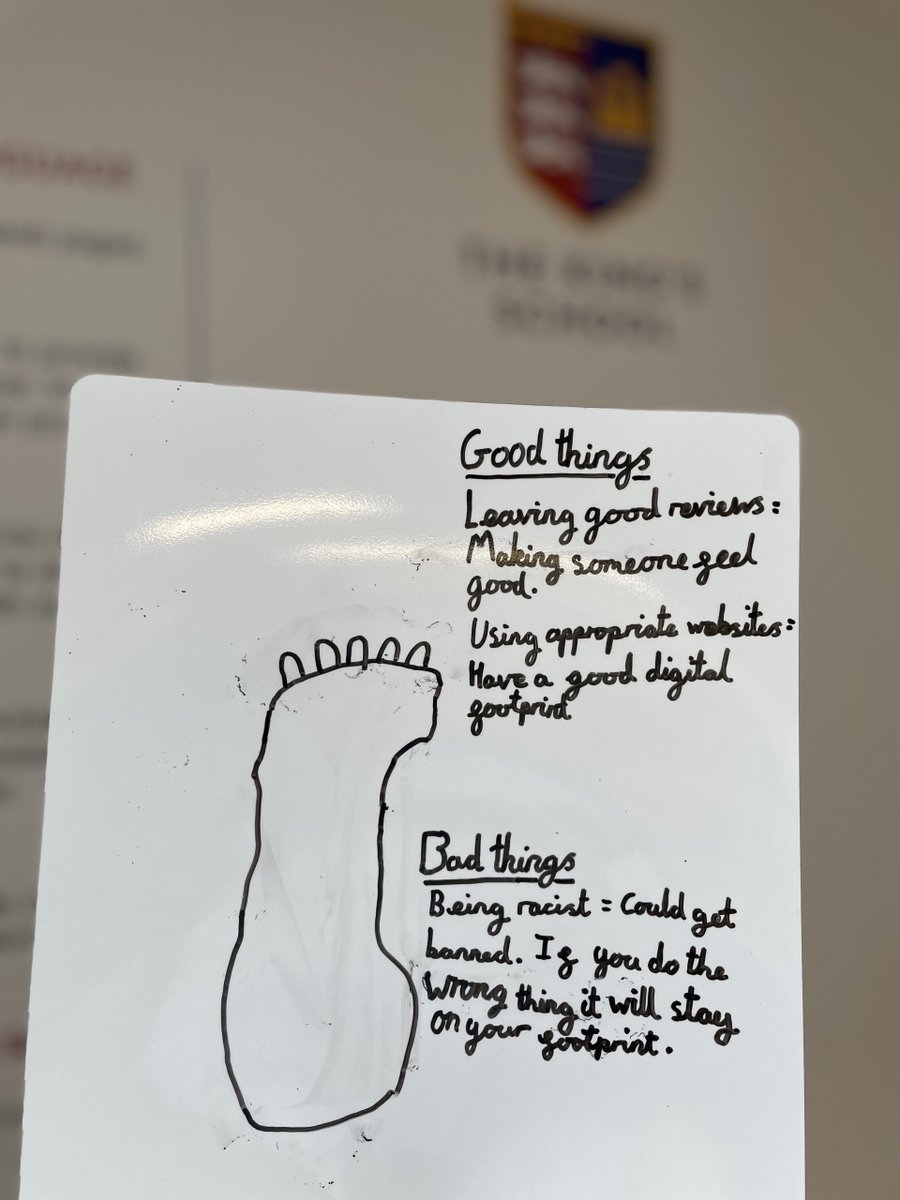 GUAGE
THE KING'S
SCHOOL
Good things
Leaving good reviews:
Making someone feel
good.
Using appropriate websites:
Have a good digital
footprint
Bad things
Being racist = Could get
banned. If you do the
wrong thing it will stay
on your footprint.